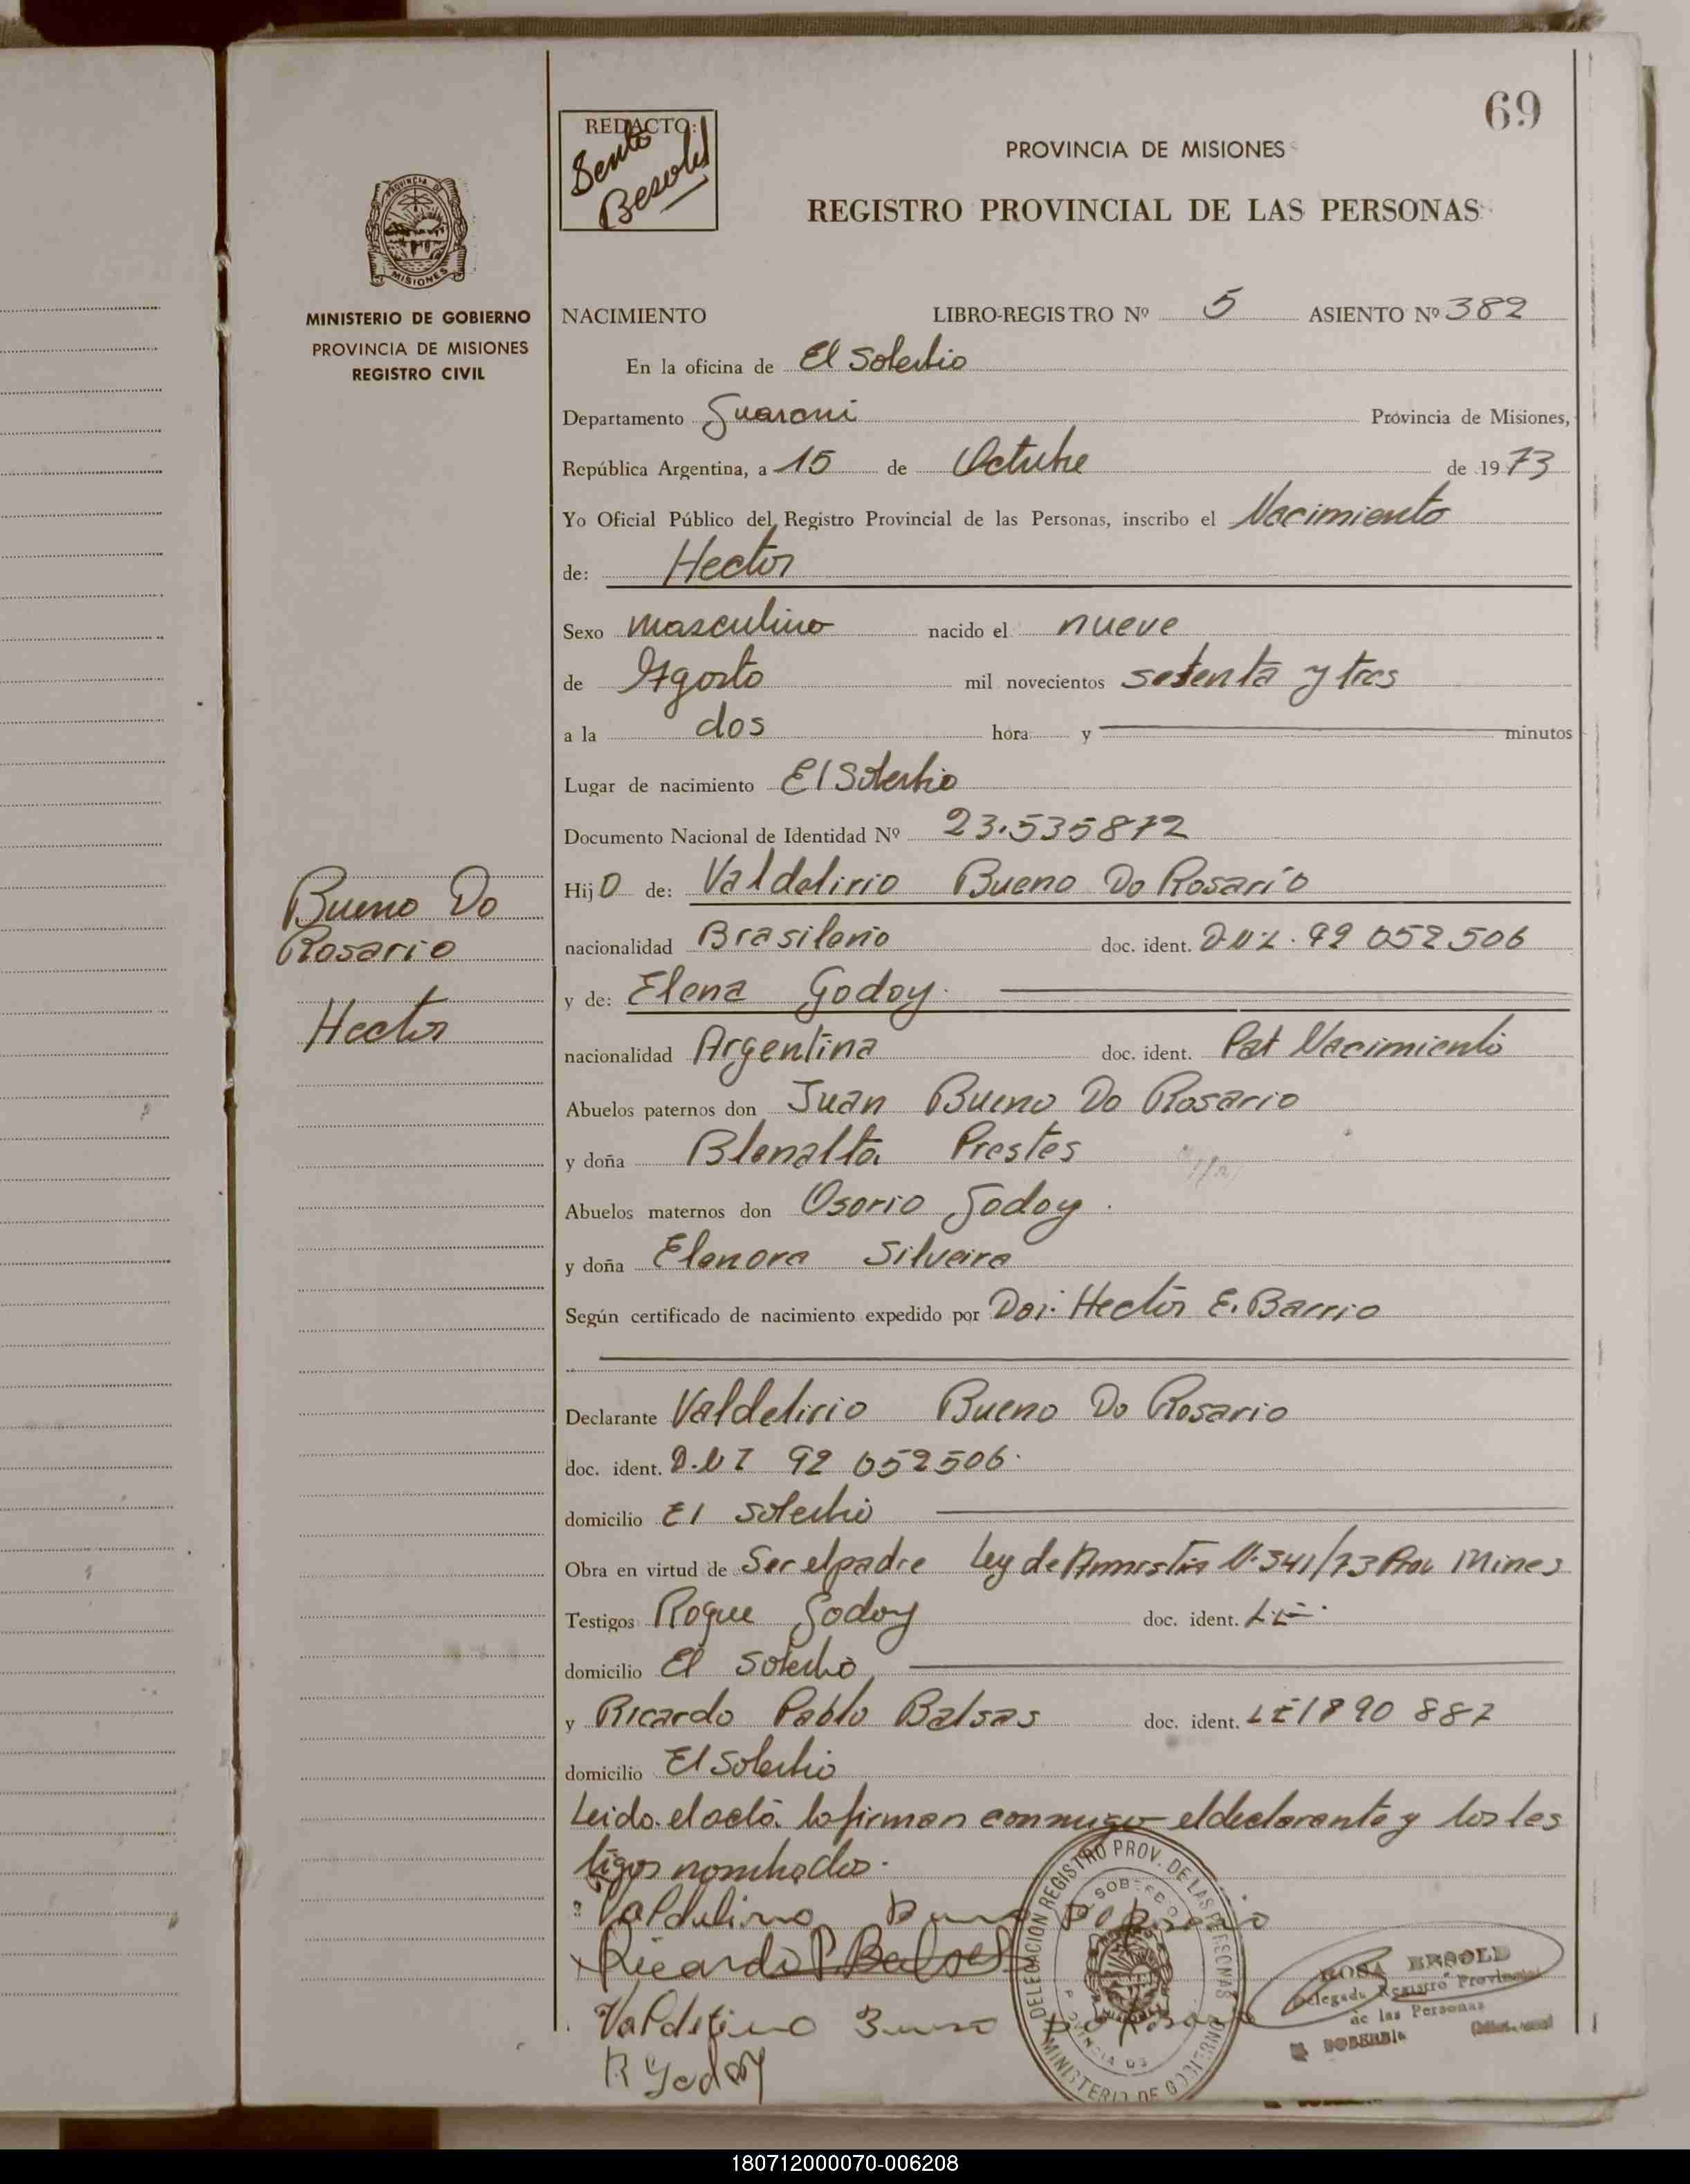 69
REDACTO:
Besold
PROVINCIA DE MISIONES
REGISTRO PROVINCIAL DE LAS PERSONAS
PROVINCIA DE
MISIONES
MINISTERIO DE GOBIERNO
PROVINCIA DE MISIONES
REGISTRO CIVIL
NACIMIENTO LIBRO-REGISTRO Nº 5 ASIENTO Nº 382
En la oficina de El Soberbio
Departamento Guarani Provincia de Misiones,
República Argentina, a 15 de Octubre de 1973
Yo Oficial Público del Registro Provincial de las Personas, inscribo el Nacimiento
de: Hector
Sexo masculino nacido el nueve
de Agosto mil novecientos setenta y tres
a la dos hora y minutos
Lugar de nacimiento El Soberbio
Documento Nacional de Identidad Nº 23.535872
Hijo de: Valdelirio Bueno Do Rosario
nacionalidad Brasileño doc. ident. D.N.I. 92 052506
y de: Elena Godoy
nacionalidad Argentina doc. ident. Pat Nacimiento
Abuelos paternos don Juan Bueno Do Rosario
y doña Blenalta Prestes
Abuelos maternos don Osorio Godoy
y doña Elenora Silveira
Según certificado de nacimiento expedido por Hector E. Barrio
Declarante Valdelirio Bueno Do Rosario
doc. ident. D.N.I 92 052506
domicilio El Soberbio
Obra en virtud de Ser el padre Ley de Amnistia N. 341/73
Testigos Roque Godoy doc. ident.
domicilio El Soberbio
y Ricardo Pablo Balsas doc. ident. LE 1890 887
domicilio El Soberbio
Leido el acta lo firman conmigo el declarante y los tes
tigos nombrados.
Bueno Do
Rosario
Hector
Ricardo P. Balsas
R Godoy
DELEGACION REGISTRO PROV. DE LAS PERSONAS
MINISTERIO DE GOBIERNO
BESOLD
Delegada Registro Provincial
de las Personas
SOBERBIO
180712000070-006208